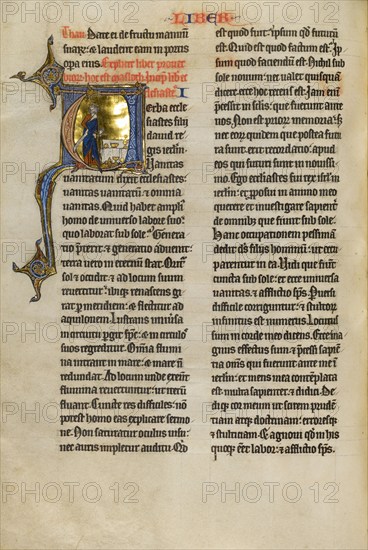 LIBER
Than. Date ei de fructu manuum
suaȝ: ⁊ laudent eam in portis
opa eius. Explicit liber prouer
biorȝ hoc est masloth. Incip lib ec
clesiastes. I
Verba eccle
siastes filii
dauid re
gis ierlm.
Uanitas
uanitatum dixit ecclesiastes:
uanitas uanitatū ⁊ omnia
uanitas. Quid habet ampli⁹
homo de uniuerso labore suo:
quo laborat sub sole? Genera
tio preterit ⁊ generatio aduenit:
terra uero in eternū stat. Orit᷑
sol ⁊ occidit: ⁊ ad locum suum
reuertitur: ibiqȝ renascens gi
rat p meridiem: ⁊ flectitur ad
aquilonem. Lustrans uniūsa
in circuitu pergit sp̄s: ⁊ in circulos
suos regreditur. Omnia flumi
na intrant in mare: ⁊ mare n̄
redundat. Ad locum unde exeūt
flumina reuertuntur: ut iterū
fluant. Cuncte res difficiles: nō
potest homo eas explicare sermo
ne. Non saturatur oculus uisu:
nec auris impletur auditu. Qd̄
est quod fuit: ipsum qd̄ futurū
est. Quid est quod factum est: Ip
sum quod faciendū est. Nichil sub
sole nouum: nec ualet quisquā
dicere: ecce hoc recens est. Iam eni᷑
p̄cessit in sclis: que fuerunt ante
nos. Non est prior memoria:
nec eorȝ quidem que postea futu
ra sunt: erit recordatio apud eos
qui futuri sunt in nouissi
mo. Ego ecclesiastes fui rex isrl in
ierlm: ⁊ p̄posui in animo meo
querere ⁊ inuestigare sapienter
de omnibȝ que fiunt sub sole.
Hanc occupationem pessimā
dedit ds̄ filiis hominū: ut occu
parentur in ea. Uidi que fiūt
cuncta sub sole: ⁊ ecce uniuersa
uanitas: ⁊ afflictio sp̄s. Puersi
difficile corriguntur: ⁊ stultorȝ
infinitus est numerus. Locutus
sum in corde meo dicens. Ecce ma
gnus effectus sum: ⁊ p̄cessi sapien
tia om̄s qui fuerunt ante me ī
ierlm: ⁊ mens mea contemplata
est multa sapienter: ⁊ didici. De
diqȝ cor meum ut scirem prudē
tiam atqȝ doctrinam: erroresqȝ
⁊ stulticiam. Et agnoui qd̄ in his
quoqȝ eēt labor: ⁊ afflictio sp̄s.